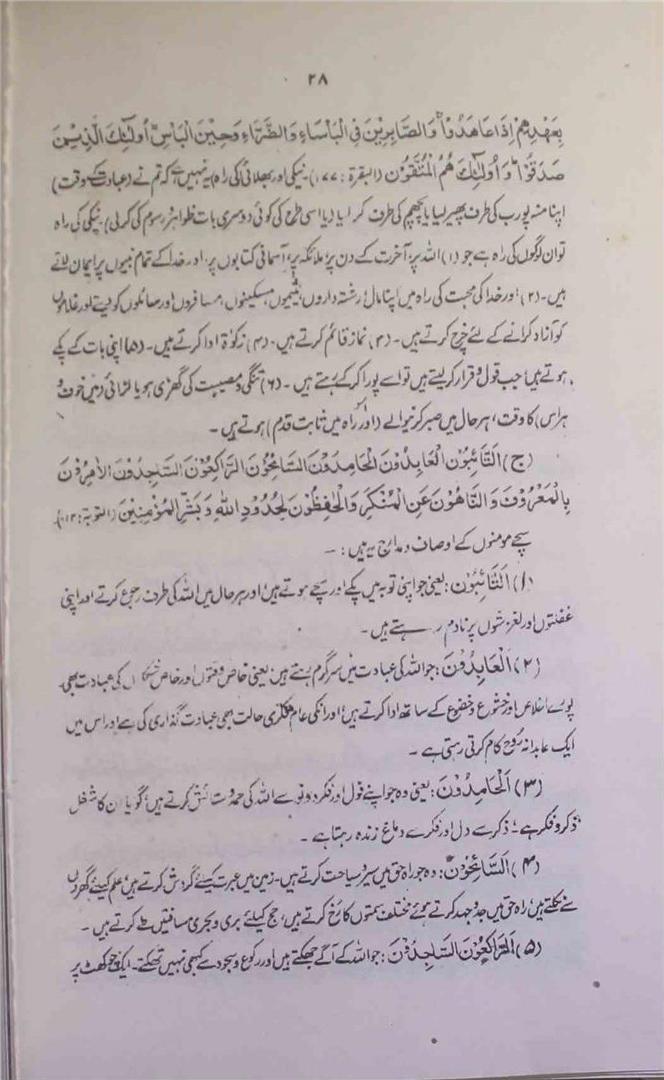 ۲۸
بِعَهْدِهِمْ إِذَا عَاهَدُوْا وَالصَّابِرِيْنَ فِى الْبَأْسَاءِ وَالضَّرَّاءِ وَحِيْنَ الْبَأْسِ أُولٰئِكَ الَّذِيْنَ
صَدَقُوْا وَأُولٰئِكَ هُمُ الْمُتَّقُوْنَ (البقرة : ۱۷۷)۔ نیکی اور بھلائی کی راہ) یہ نہیں ہے کہ تم نے (عبادت کے وقت)
اپنا منہ پورب کی طرف پھیر لیا یا پچھم کی طرف کر لیا (یا اسی طرح کی کوئی دوسری بات ظواہر و رسوم کی کرلی)۔ نیکی کی راہ
تو ان لوگوں کی راہ ہے جو (۱) اللہ پر، آخرت کے دن پر، ملائکہ پر، آسمانی کتابوں پر، اور خدا کے تمام نبیوں پر ایمان لاتے
ہیں۔ (۲) اور خدا کی محبت کی راہ میں اپنا مال رشتہ داروں، یتیموں، مسکینوں، مسافروں اور سائلوں کو دیتے اور غلاموں
کو آزاد کرانے کے لئے خرچ کرتے ہیں۔ (۳) نماز قائم کرتے ہیں۔ (۴) زکوٰۃ ادا کرتے ہیں۔ (۵) اپنی بات کے پکے
ہوتے ہیں؛ جب قول و قرار کرلیتے ہیں تو اسے پورا کر کے رہتے ہیں۔ (۶) تنگی و مصیبت کی گھڑی ہو یا لڑائی (میں خوف و
ہراس) کا وقت، ہر حال میں صبر کرنیوالے (اور راہ میں ثابت قدم) ہوتے ہیں۔
(ج) اَلتَّائِبُوْنَ الْعَابِدُوْنَ الْحَامِدُوْنَ السَّائِحُوْنَ الرَّاكِعُوْنَ السَّاجِدُوْنَ الْاٰمِرُوْنَ
بِالْمَعْرُوْفِ وَالنَّاهُوْنَ عَنِ الْمُنْكَرِ وَالْحَافِظُوْنَ لِحُدُوْدِ اللهِ وَبَشِّرِ الْمُؤْمِنِيْنَ (التوبة : ۱۱۲)۔
سچے مومنوں کے اوصاف و مدارج یہ ہیں :۔
(۱) اَلتَّائِبُوْنَ : یعنی جو اپنی توبہ میں پکے اور سچے ہوتے ہیں؛ اور ہر حال میں اللہ کی طرف رجوع کرتے اور اپنی
غفلتوں اور لغزشوں پر نادم رہتے ہیں۔
(۲) اَلْعَابِدُوْنَ : جو اللہ کی عبادت میں سرگرم رہتے ہیں، یعنی خاص وقتوں اور خاص شکلوں کی عبادت بھی
پورے اخلاص اور خشوع و خضوع کے ساتھ ادا کرتے ہیں؛ اور انکی عام فکری حالت بھی عبادت گذاری کی ہے اور اس میں
ایک عابدانہ روح کام کرتی رہتی ہے۔
(۳) اَلْحَامِدُوْنَ : یعنی وہ جو اپنے قول اور فکر دونوں سے اللہ کی حمد و ستائش کرتے ہیں؛ گویا ان کا شغل
ذکر و فکر ہے؛ ذکر سے دل اور فکر سے دماغ زندہ رہتا ہے۔
(۴) اَلسَّائِحُوْنَ : وہ جو راہ حق میں سیر و سیاحت کرتے ہیں۔ زمین میں عبرت کیلئے گردش کرتے ہیں، علم کیلئے گھروں
سے نکلتے ہیں، راہ حق میں جدوجہد کرتے ہوئے مختلف سمتوں کا رخ کرتے ہیں، حج کیلئے بری و بحری مسافتیں طے کرتے ہیں۔
(۵) اَلرَّاكِعُوْنَ السَّاجِدُوْنَ : جو اللہ کے آگے جھکتے ہیں اور رکوع و سجود سے کبھی نہیں تھکتے۔ ایک چوکھٹ پر